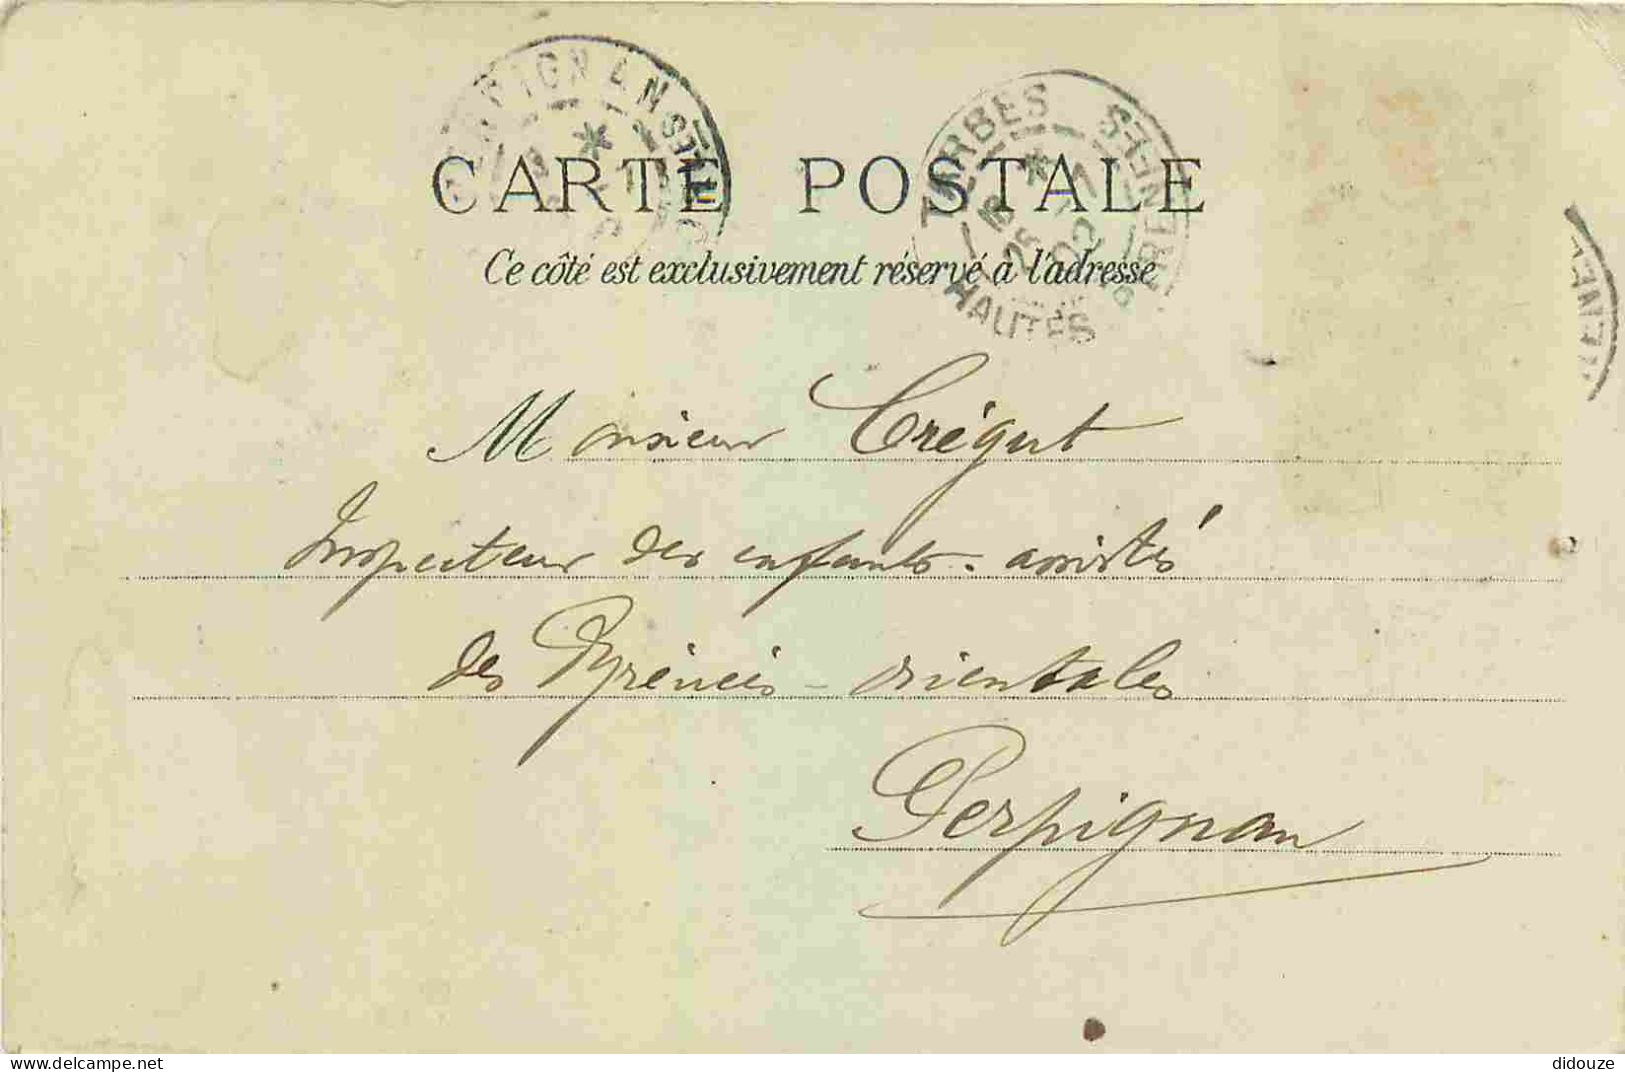 CARTE POSTALE
Ce côté est exclusivement réservé à l'adresse
TARBES
HAUTES
Monsieur Crégut
Inspecteur des enfants-assistés
des Pyrénées-orientales
Perpignan
https://www.delcampe.net
didouze